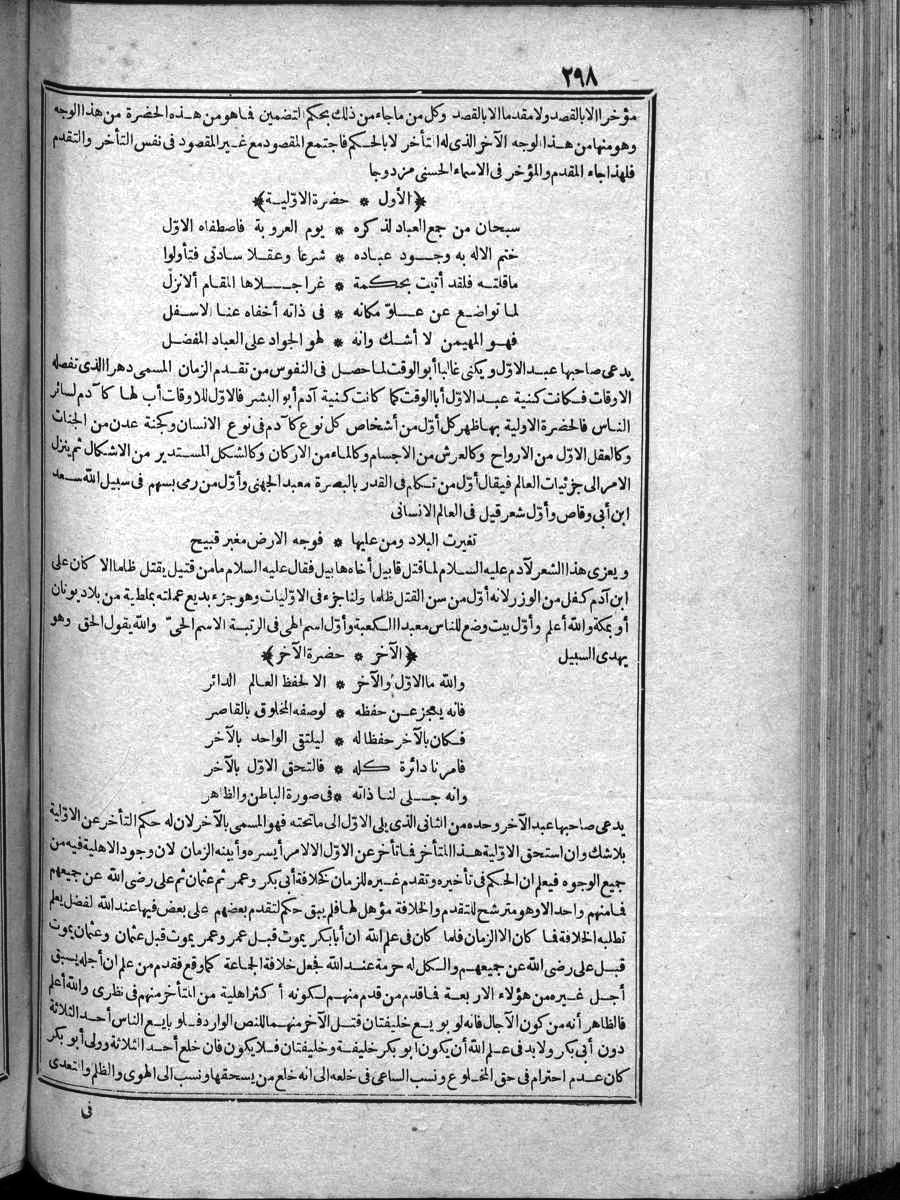 ٢٩٨
مؤخرا الا بالقصد ولا مقدما الا بالقصد وكل من ماجاء من ذلك بحكم التضمين فاهو من هذه الحضرة من هذا الوجه
وهو منها من هذا الوجه الآخر الذى له التأخر لا بالحكم فاجتمع المقصود مع غير المقصود فى نفس التأخر والتقدم
فلهذا جاء المقدم والمؤخر فى الاسماء الحسنى مزدوجا
﴿الأول * حضرة الاوّلية﴾
سبحان من جمع العباد لذكره * يوم العروبة فاصطفاه الاوّل
ختم الاله به وجود عباده * شرعا وعقلا سادتى فتأولوا
ماقلته فلقد أتيت بحكمة * غراجلاها المقام ألانزلّ
لما تواضع عن علوّ مكانه * فى ذاته أخفاه عنا الاسفل
فهو المهيمن لا أشك وانه * لهو الجواد على العباد المفضل
يدعى صاحبها عبد الاوّل ويكنى غالبا أبو الوقت لما حصل فى النفوس من تقدم الزمان المسمى دهرا الذى تفصله
الاوقات فكانت كنية عبد الاوّل أبا الوقت كما كانت كنية آدم أبو البشر فالاوّل للاوقات أب لها كآدم لسائر
الناس فالحضرة الاولية بها ظهر كل أوّل من أشخاص كل نوع كآدم فى نوع الانسان وكجنة عدن من الجنات
وكالعقل الاوّل من الارواح وكالعرش من الاجسام وكالماء من الاركان وكالشكل المستدير من الاشكال ثم ينزل
الامر الى جزئيات العالم فيقال أوّل من تكلم فى القدر بالبصرة معبد الجهنى وأوّل من رمى بسهم فى سبيل الله سعد
ابن أبى وقاص وأوّل شعر قيل فى العالم الانسانى
تغيرت البلاد ومن عليها * فوجه الارض مغبر قبيح
ويعزى هذا الشعر لآدم عليه السلام لما قتل قابيل أخاه هابيل فقال عليه السلام مامن قتيل يقتل ظلما الا كان على
ابن آدم كفل من الوزر لانه أوّل من سن القتل ظلما ولنا جزء فى الاوّليات وهو جزء بديع عملته بملطية من بلاد يونان
أو بمكة والله أعلم وأوّل بيت وضع للناس معبدا الكعبة وأوّل اسم الهى فى الرتبة الاسم الحىّ والله يقول الحق وهو
يهدى السبيل ﴿الآخر * حضرة الآخر﴾
والله ما الاوّل والآخر * الا لحفظ العالم الدائر
فانه يعجز عن حفظه * لوصفه المخلوق بالقاصر
فكان بالآخر حفظا له * ليلتقى الواحد بالآخر
فامرنا دائرة كله * فالتحق الاوّل بالآخر
وانه جلى لنا ذاته * فى صورة الباطن والظاهر
يدعى صاحبها عبد الآخر وحده من الثانى الذى يلى الاوّل الى ماتحته فهو المسمى بالآخر لان له حكم التأخر عن الاوّلية
بلاشك وان استحق الاوّلية هذا المتأخر فما تأخر عن الاوّل الا لامر أيسره وأبينه الزمان لان وجود الاهلية فيه من
جميع الوجوه فيعلم ان الحكم فى تأخيره وتقدم غيره للزمان كخلافة أبى بكر وعمر ثم عثمان ثم على رضى الله عن جميعهم
فمامنهم واحد الا وهو مترشح للتقدم والخلافة مؤهل لها فلم يبق حكم لتقدم بعضهم على بعض فيها عند الله لفضل يعلم
تطلبه الخلافة فما كان الا الزمان فلما كان فى علم الله ان أبا بكر يموت قبل عمر وعمر يموت قبل عثمان وعثمان يموت
قبل على رضى الله عن جميعهم والكل له حرمة عند الله فجعل خلافة الجماعة كما وقع فقدم من علم ان أجله يسبق
أجل غيره من هؤلاء الاربعة فما قدم من قدم منهم لكونه أكثر اهلية من المتأخر منهم فى نظرى والله أعلم
فالظاهر أنه من كون الآجال فانه لو بويع خليفتان قتل الآخر منهما للنص الوارد فلو بايع الناس أحد الثلاثة
دون أبى بكر ولا بد فى علم الله أن يكون أبو بكر خليفة وخليفتان فلا يكون فان خلع أحد الثلاثة وولى أبو بكر
كان عدم احترام فى حق المخلوع ونسب الساعى فى خلعه الى انه خلع من يستحقها ونسب الى الهوى والظلم والتعدى
فى